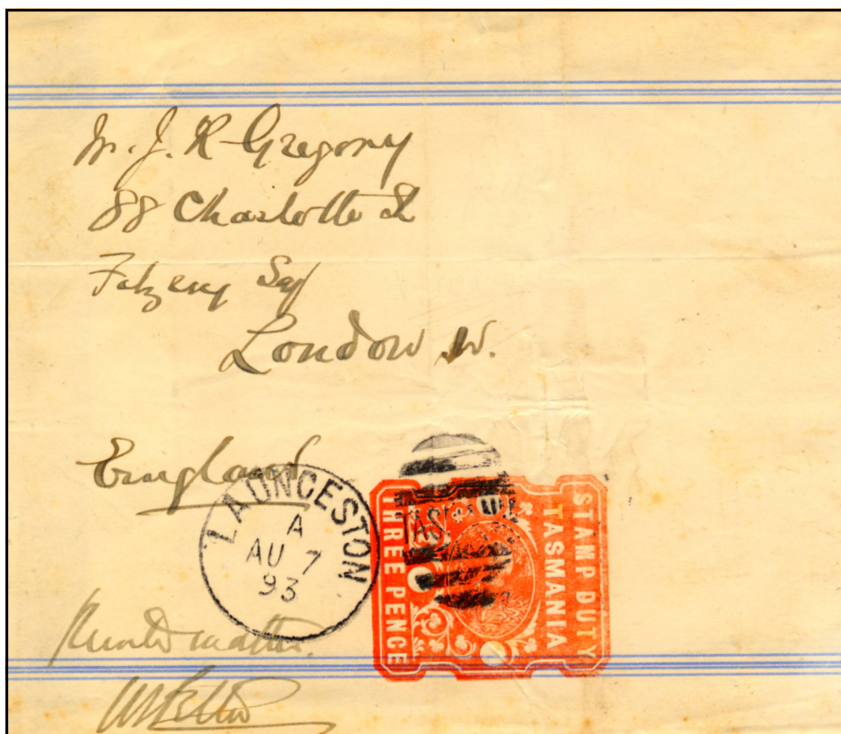 M. J. R. Gregory
88 Charlotte St
Fitzroy Sq
London W.
England
LAUNCESTON
A
AU 7
93
TAS
THREE PENCE
STAMP DUTY
TASMANIA
Printed matter.